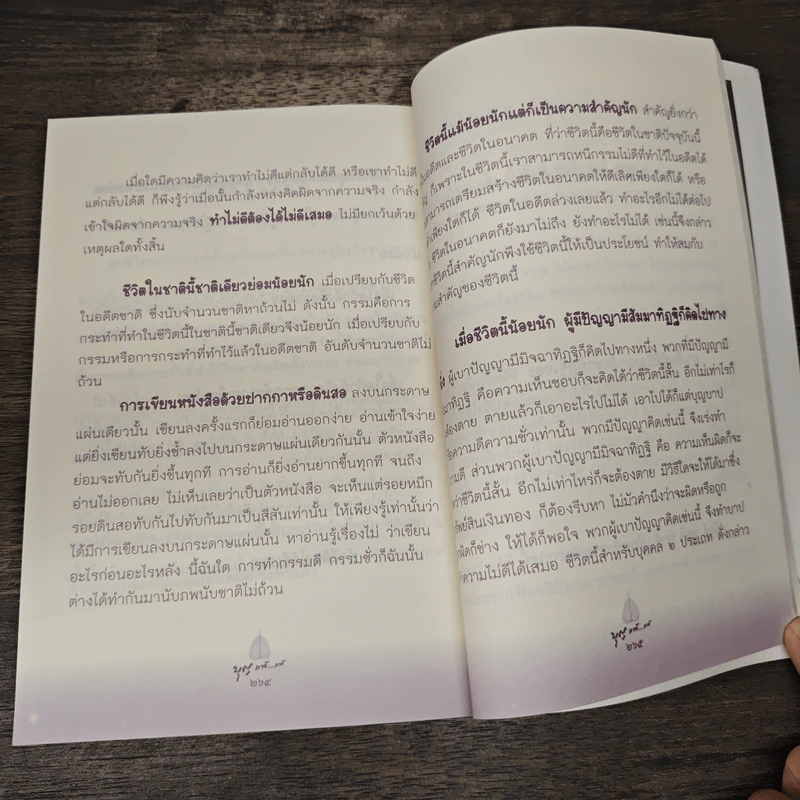 เมื่อใดมีความคิดว่าเราทำไม่ดีแต่กลับได้ดี หรือเขาทำไม่ดี
แต่กลับได้ดี ก็พึงรู้ว่าเมื่อนั้นกำลังหลงคิดผิดจากความจริง กำลัง
เข้าใจผิดจากความจริง ทำไม่ดีต้องได้ไม่ดีเสมอ ไม่มียกเว้นด้วย
เหตุผลใดทั้งสิ้น
ชีวิตในชาตินี้ชาติเดียวย่อมน้อยนัก เมื่อเปรียบกับชีวิต
ในอดีตชาติ ซึ่งนับจำนวนชาติหาถ้วนไม่ ดังนั้น กรรมคือการ
กระทำที่ทำในชีวิตนี้ในชาตินี้ชาติเดียวจึงน้อยนัก เมื่อเปรียบกับ
กรรมหรือการกระทำที่ทำไว้แล้วในอดีตชาติ อันดับจำนวนชาติไม่
ถ้วน
การเขียนหนังสือด้วยปากกาหรือดินสอ ลงบนกระดาษ
แผ่นเดียวนั้น เขียนลงครั้งแรกก็ย่อมอ่านออกง่าย อ่านเข้าใจง่าย
แต่ยิ่งเขียนทับยิ่งซ้ำลงไปบนกระดาษแผ่นเดียวกันนั้น ตัวหนังสือ
ย่อมจะทับกันยิ่งขึ้นทุกที การอ่านก็ยิ่งอ่านยากขึ้นทุกที จนถึง
อ่านไม่ออกเลย ไม่เห็นเลยว่าเป็นตัวหนังสือ จะเห็นแต่รอยหมึก
รอยดินสอทับกันไปทับกันมาเป็นสีสันเท่านั้น ให้เพียงรู้เท่านั้นว่า
ได้มีการเขียนลงบนกระดาษแผ่นนั้น หาอ่านรู้เรื่องไม่ ว่าเขียน
อะไรก่อนอะไรหลัง นี้ฉันใด การทำกรรมดี กรรมชั่วก็ฉันนั้น
ต่างได้ทำกันมานับภพนับชาติไม่ถ้วน
บุญ แท้...แท้
๒๖๔
ชีวิตนี้แม้น้อยนักแต่ก็เป็นความสำคัญนัก สำคัญยิ่งกว่า
อดีตและชีวิตในอนาคต ที่ว่าชีวิตนี้คือชีวิตในชาติปัจจุบันนี้
ก็เพราะในชีวิตนี้เราสามารถหนีกรรมไม่ดีที่ทำไว้ในอดีตได้
สามารถเตรียมสร้างชีวิตในอนาคตให้ดีเลิศเพียงใดก็ได้ หรือ
เพียงใดก็ได้ ชีวิตในอดีตล่วงเลยแล้ว ทำอะไรอีกไม่ได้ต่อไป
ชีวิตในอนาคตก็ยังมาไม่ถึง ยังทำอะไรไม่ได้ เช่นนี้จึงกล่าว
ชีวิตนี้สำคัญนักพึงใช้ชีวิตนี้ให้เป็นประโยชน์ ทำให้สมกับ
สำคัญของชีวิตนี้
เมื่อชีวิตนี้น้อยนัก ผู้มีปัญญามีสัมมาทิฏฐิก็คิดไปทาง
ผู้เบาปัญญามีมิจฉาทิฏฐิก็คิดไปทางหนึ่ง พวกที่มีปัญญามี
คือความเห็นชอบก็จะคิดได้ว่าชีวิตนี้สั้น อีกไม่เท่าไรก็
ต้องตาย ตายแล้วก็เอาอะไรไปไม่ได้ เอาไปได้ก็แต่บุญบาป
ความดีความชั่วเท่านั้น พวกมีปัญญาคิดเช่นนี้ จึงเร่งทำ
ความดี ส่วนพวกผู้เบาปัญญามีมิจฉาทิฏฐิ คือ ความเห็นผิดก็จะ
ว่าชีวิตนี้สั้น อีกไม่เท่าไหร่ก็จะต้องตาย มีวิธีใดจะให้ได้มาซึ่ง
ทรัพย์สินเงินทอง ก็ต้องรีบหา ไม่มัวคำนึงว่าจะผิดหรือถูก
ผิดก็ช่าง ให้ได้ก็พอใจ พวกผู้เบาปัญญาคิดเช่นนี้ จึงทำบาป
ความไม่ดีได้เสมอ ชีวิตนี้สำหรับบุคคล ๒ ประเภท ดังกล่าว
บุญ แท้...แท้
๒๖๕